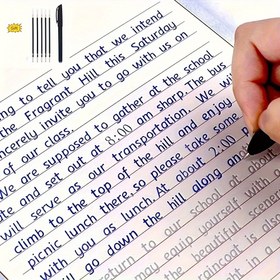 ng to tell you that we intend
the Fragrant Hill this Saturday
sincerely invite you to go with us on
of our class.
We are supposed to gather at the school
te and set out at 8:00 am sharp. The bus
will serve as our transportation. We will
climb to the top of the hill and enjoy
picnic lunch there, so please take some
with you as lunch. At about 2:00 p
ll go down the hill along ano
return to our school at abou
may equip yourself
the beautiful scener
raincoat is